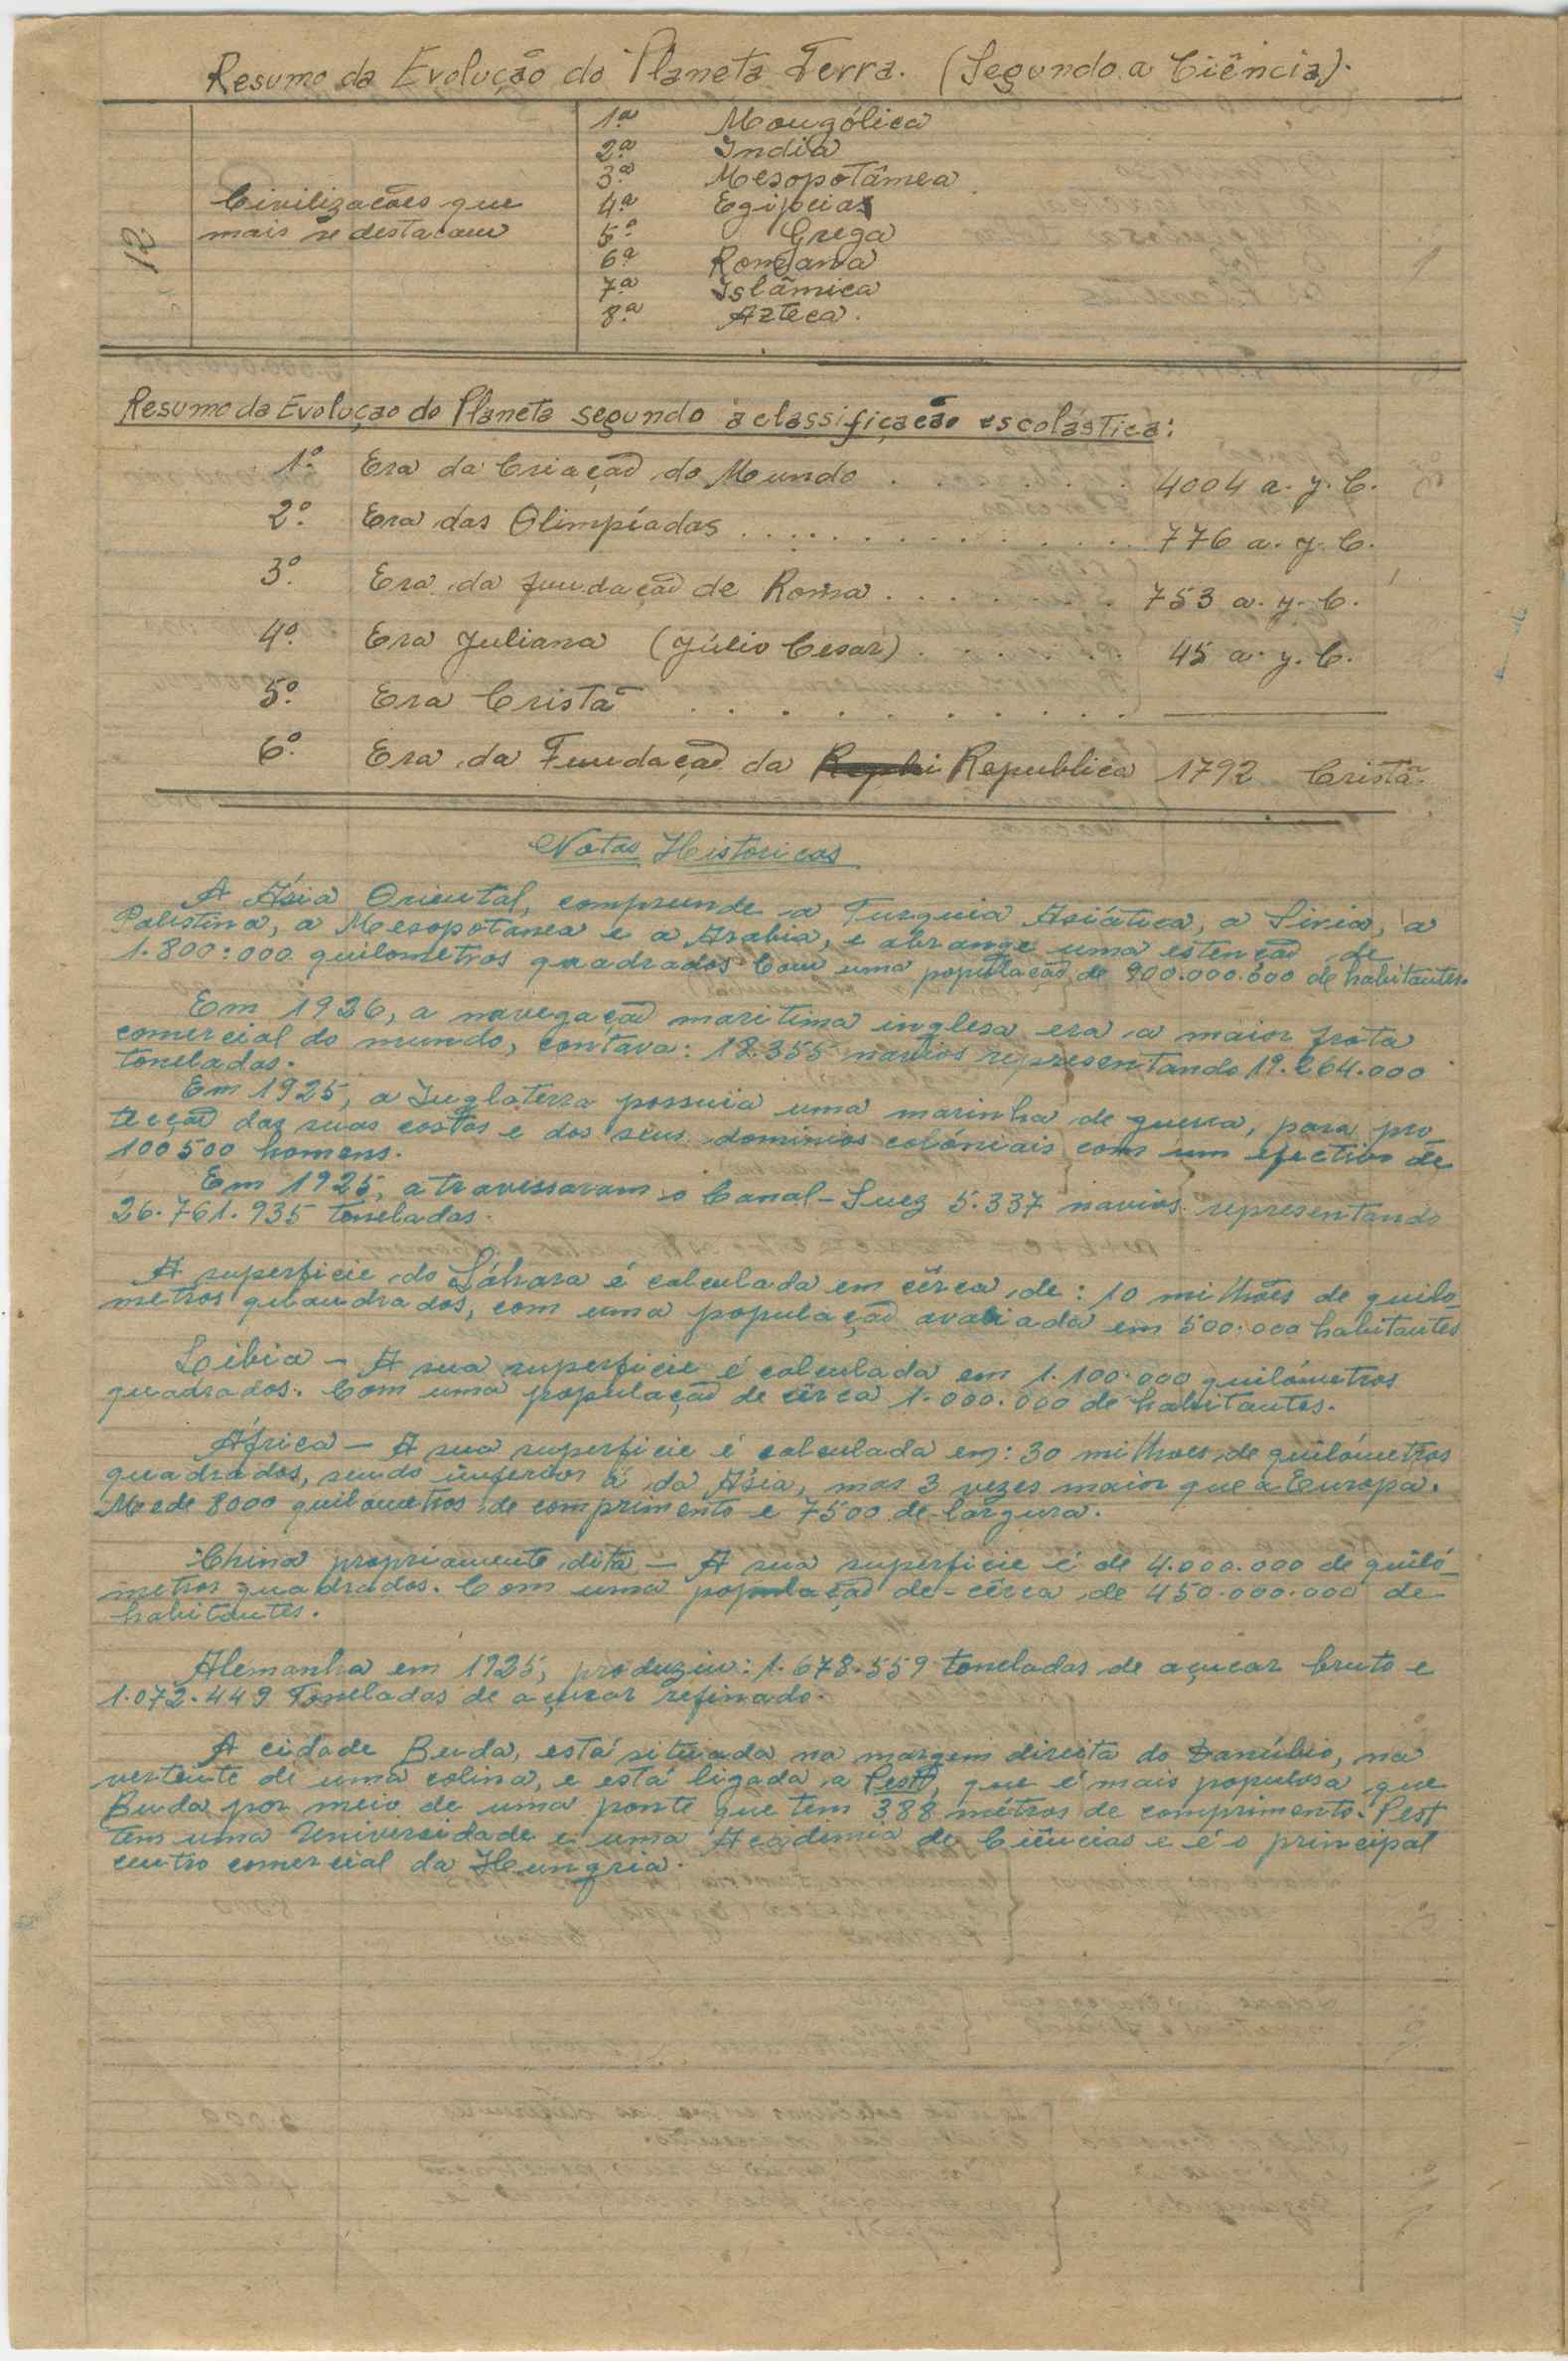 Resumo da Evolução do Planeta Terra. (Segundo a Ciência).
12
Civilizacões que
mais se destacam
1ª Mongólica
2ª India
3ª Mesopotâmea
4ª Egipcias
5ª Grega
6ª Romana
7ª Islâmica
8ª Azteca.
Resumo da Evolução do Planeta segundo a classificacão escolástica:
1º Era da Criação do Mundo . . . . . . 4004 a. J. C.
2º Era das Olimpíadas . . . . . . . . . . . . 776 a. J. C.
3º Era da fundação de Roma . . . . . . . 753 a. J. C.
4º Era Juliana (Júlio Cesar) . . . . . . 45 a. J. C.
5º Era Cristã . . . . . . . . . . .
6º Era da Fundação da Republica 1792 Cristã.
Notas Historicas
A Ásia Oriental, comprende a Turquia Asiática, a Siria, a
Palestina, a Mesopotanea e a Arabia, e abrange uma estenção de
1.800:000 quilometros quadrados Com uma população de 900.000.000 de habitantes.
Em 1926, a navegação maritima inglesa era a maior frota
comercial do mundo, contava: 18.355 navios representando 19.264.000
toneladas.
Em 1925, a Inglaterra possuia uma marinha de guerra, para pro-
tecção das suas costas e dos seus dominios colóniais com um efectivo de
100500 homens.
Em 1925, atravessaram o Canal-Suez 5.337 navios representando
26.761.935 toneladas.
A superficie do Sáhara é calculada em cêrca de: 10 milhões de quilo-
metros quaudrados, com uma população avaliada em 500.000 habitantes
Leibia - A sua superficie é calculada em 1.100.000 quilómetros
quadrados. Com uma população de cêrca 1.000.000 de habitantes.
África - A sua superficie é calculada em: 30 milhoes de quilómetros
quadrados, sendo inferior á da Ásia, mas 3 vezes maior que a Europa.
Mede 8000 quilómetros de comprimento e 7500 de largura.
China propriamente dita - A sua superficie é de 4.000.000 de quiló-
metros quadrados. Com uma população de-cêrca de 450.000.000 de
habitantes.
Alemanha em 1925, produziu: 1.678.559 toneladas de açucar bruto e
1.072.449 Toneladas de açucar refinado.
A cidade Buda, está situada na margem direita do Danúbio, na
vertente de uma colina, e está ligada a Pest, que é mais populosa que
Buda por meio de uma ponte que tem 388 métros de comprimento. Pest
tem uma Universidade e uma Academia de Ciências e é o principal
centro comercial da Hungria.